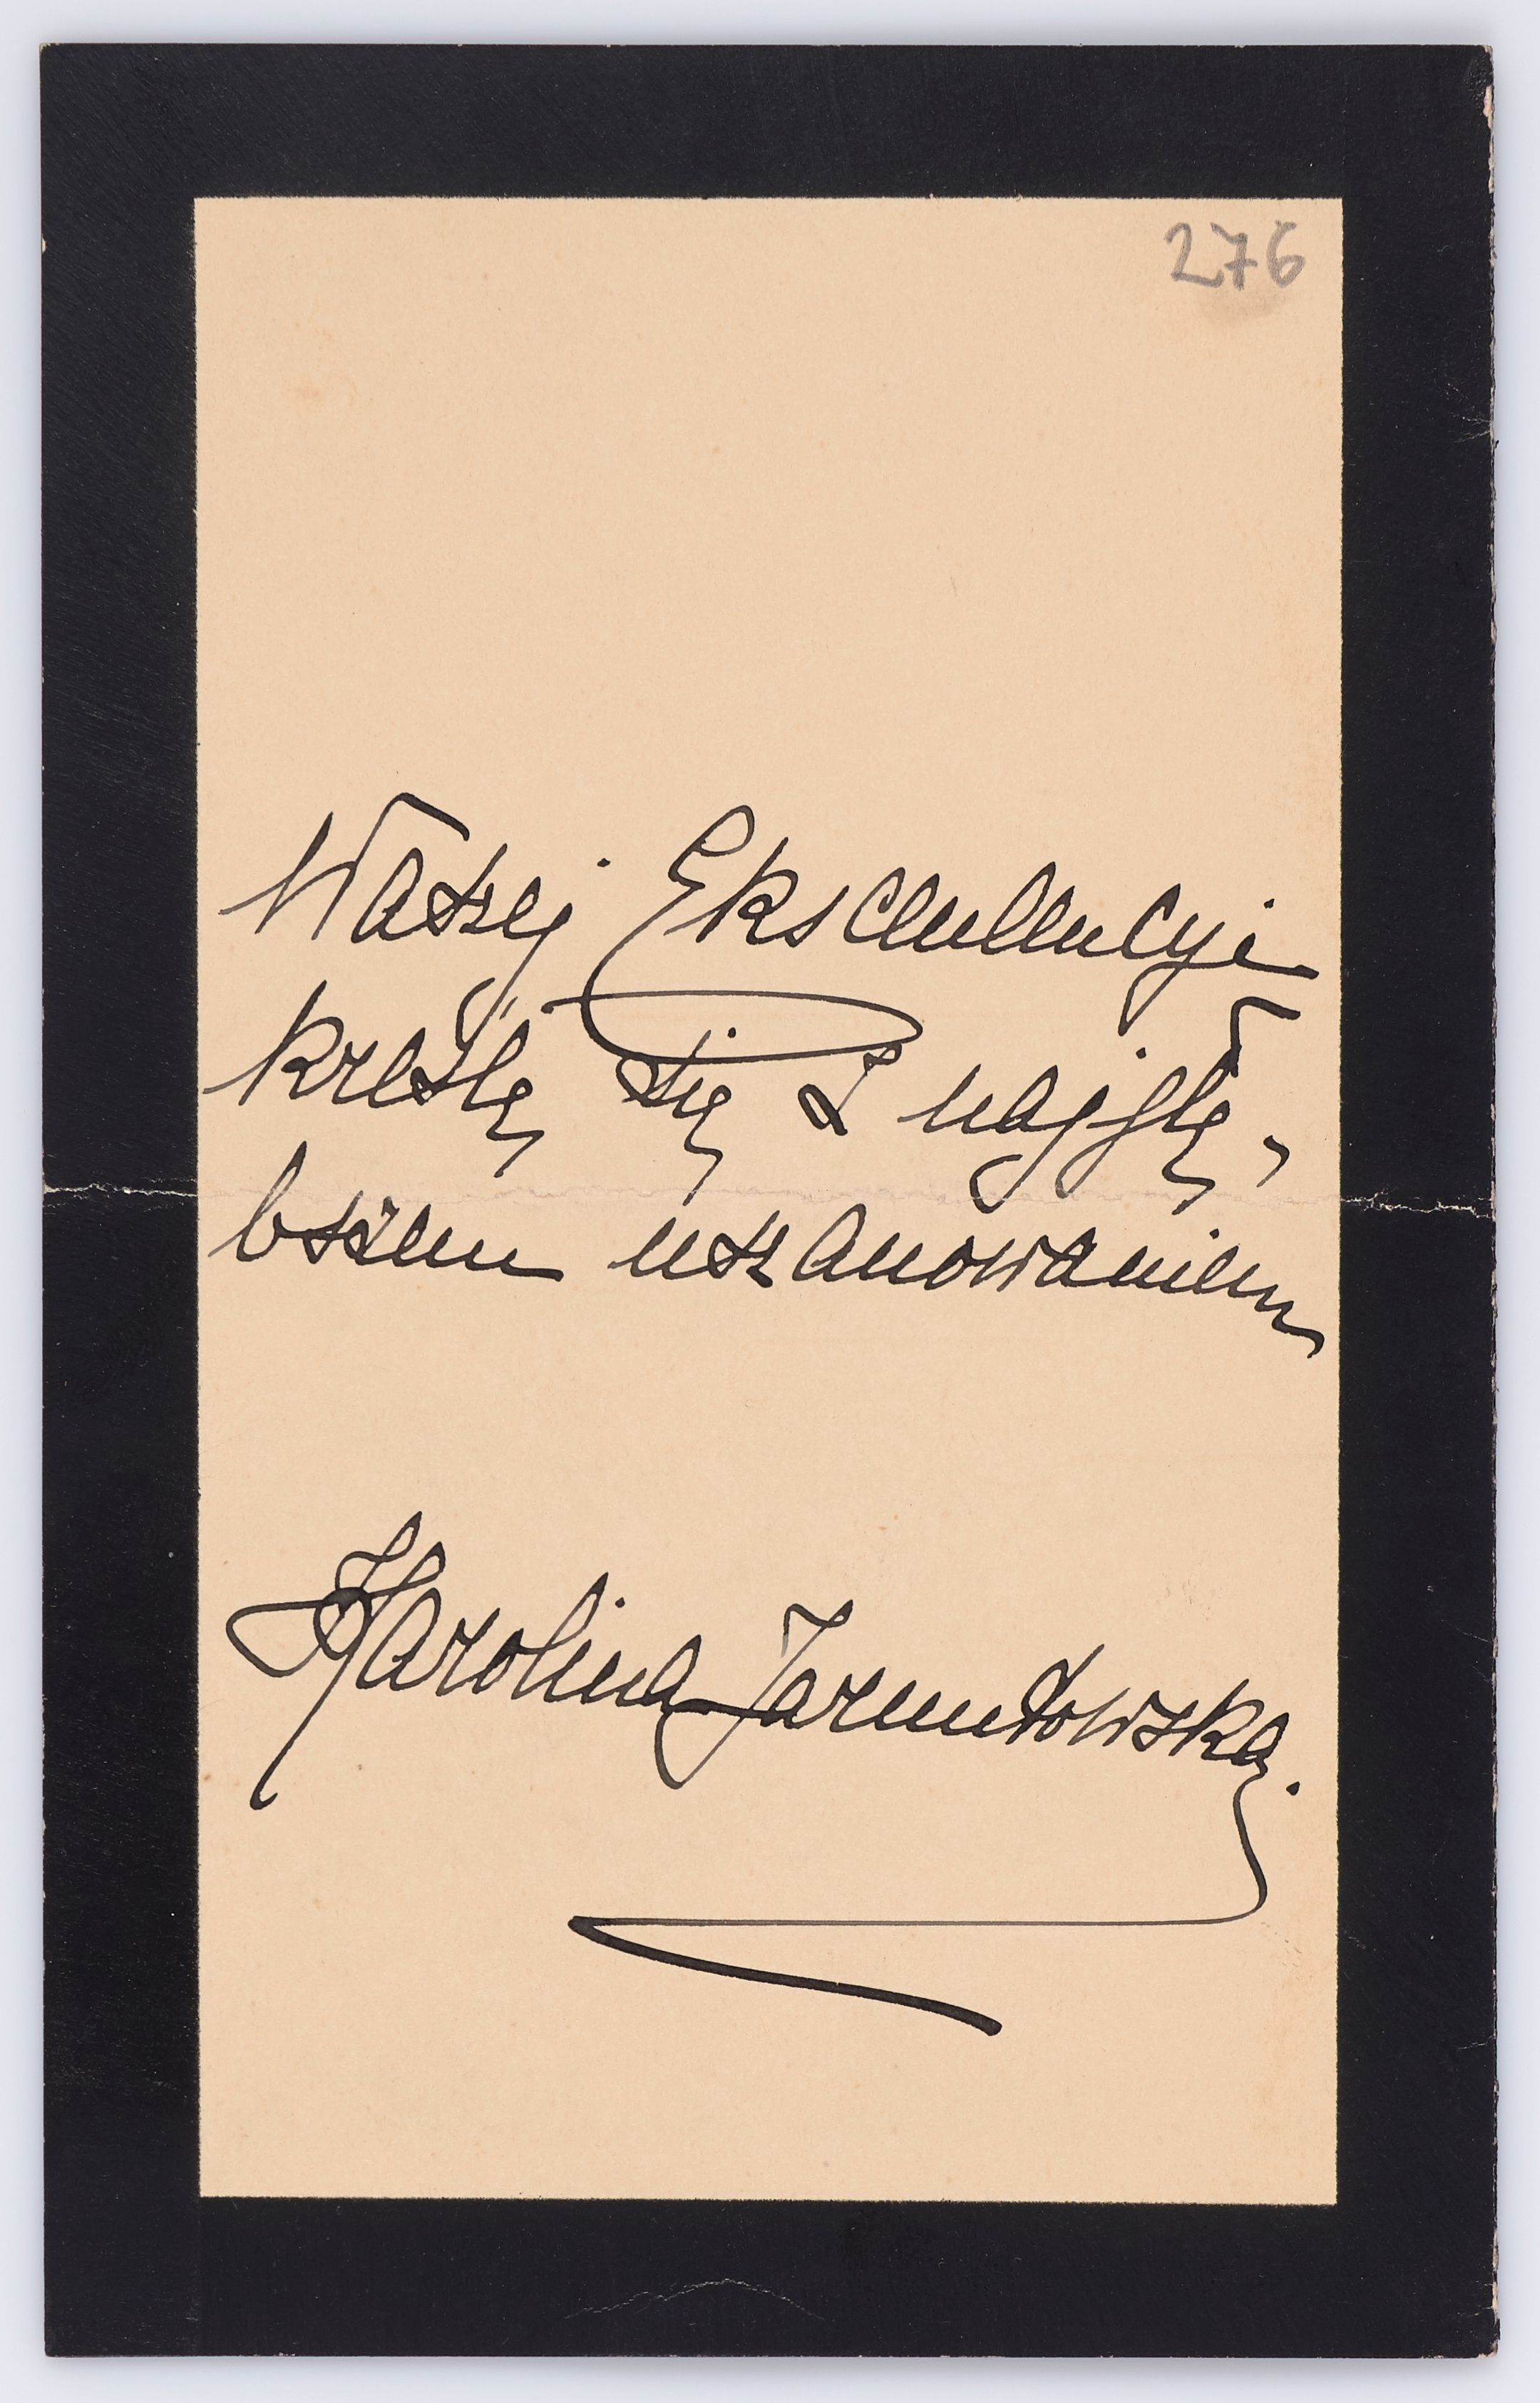 276
Waszej Ekscellencyi
kreślę się z najgłę-
bszem uszanowaniem
Karolina Jarmutowska.